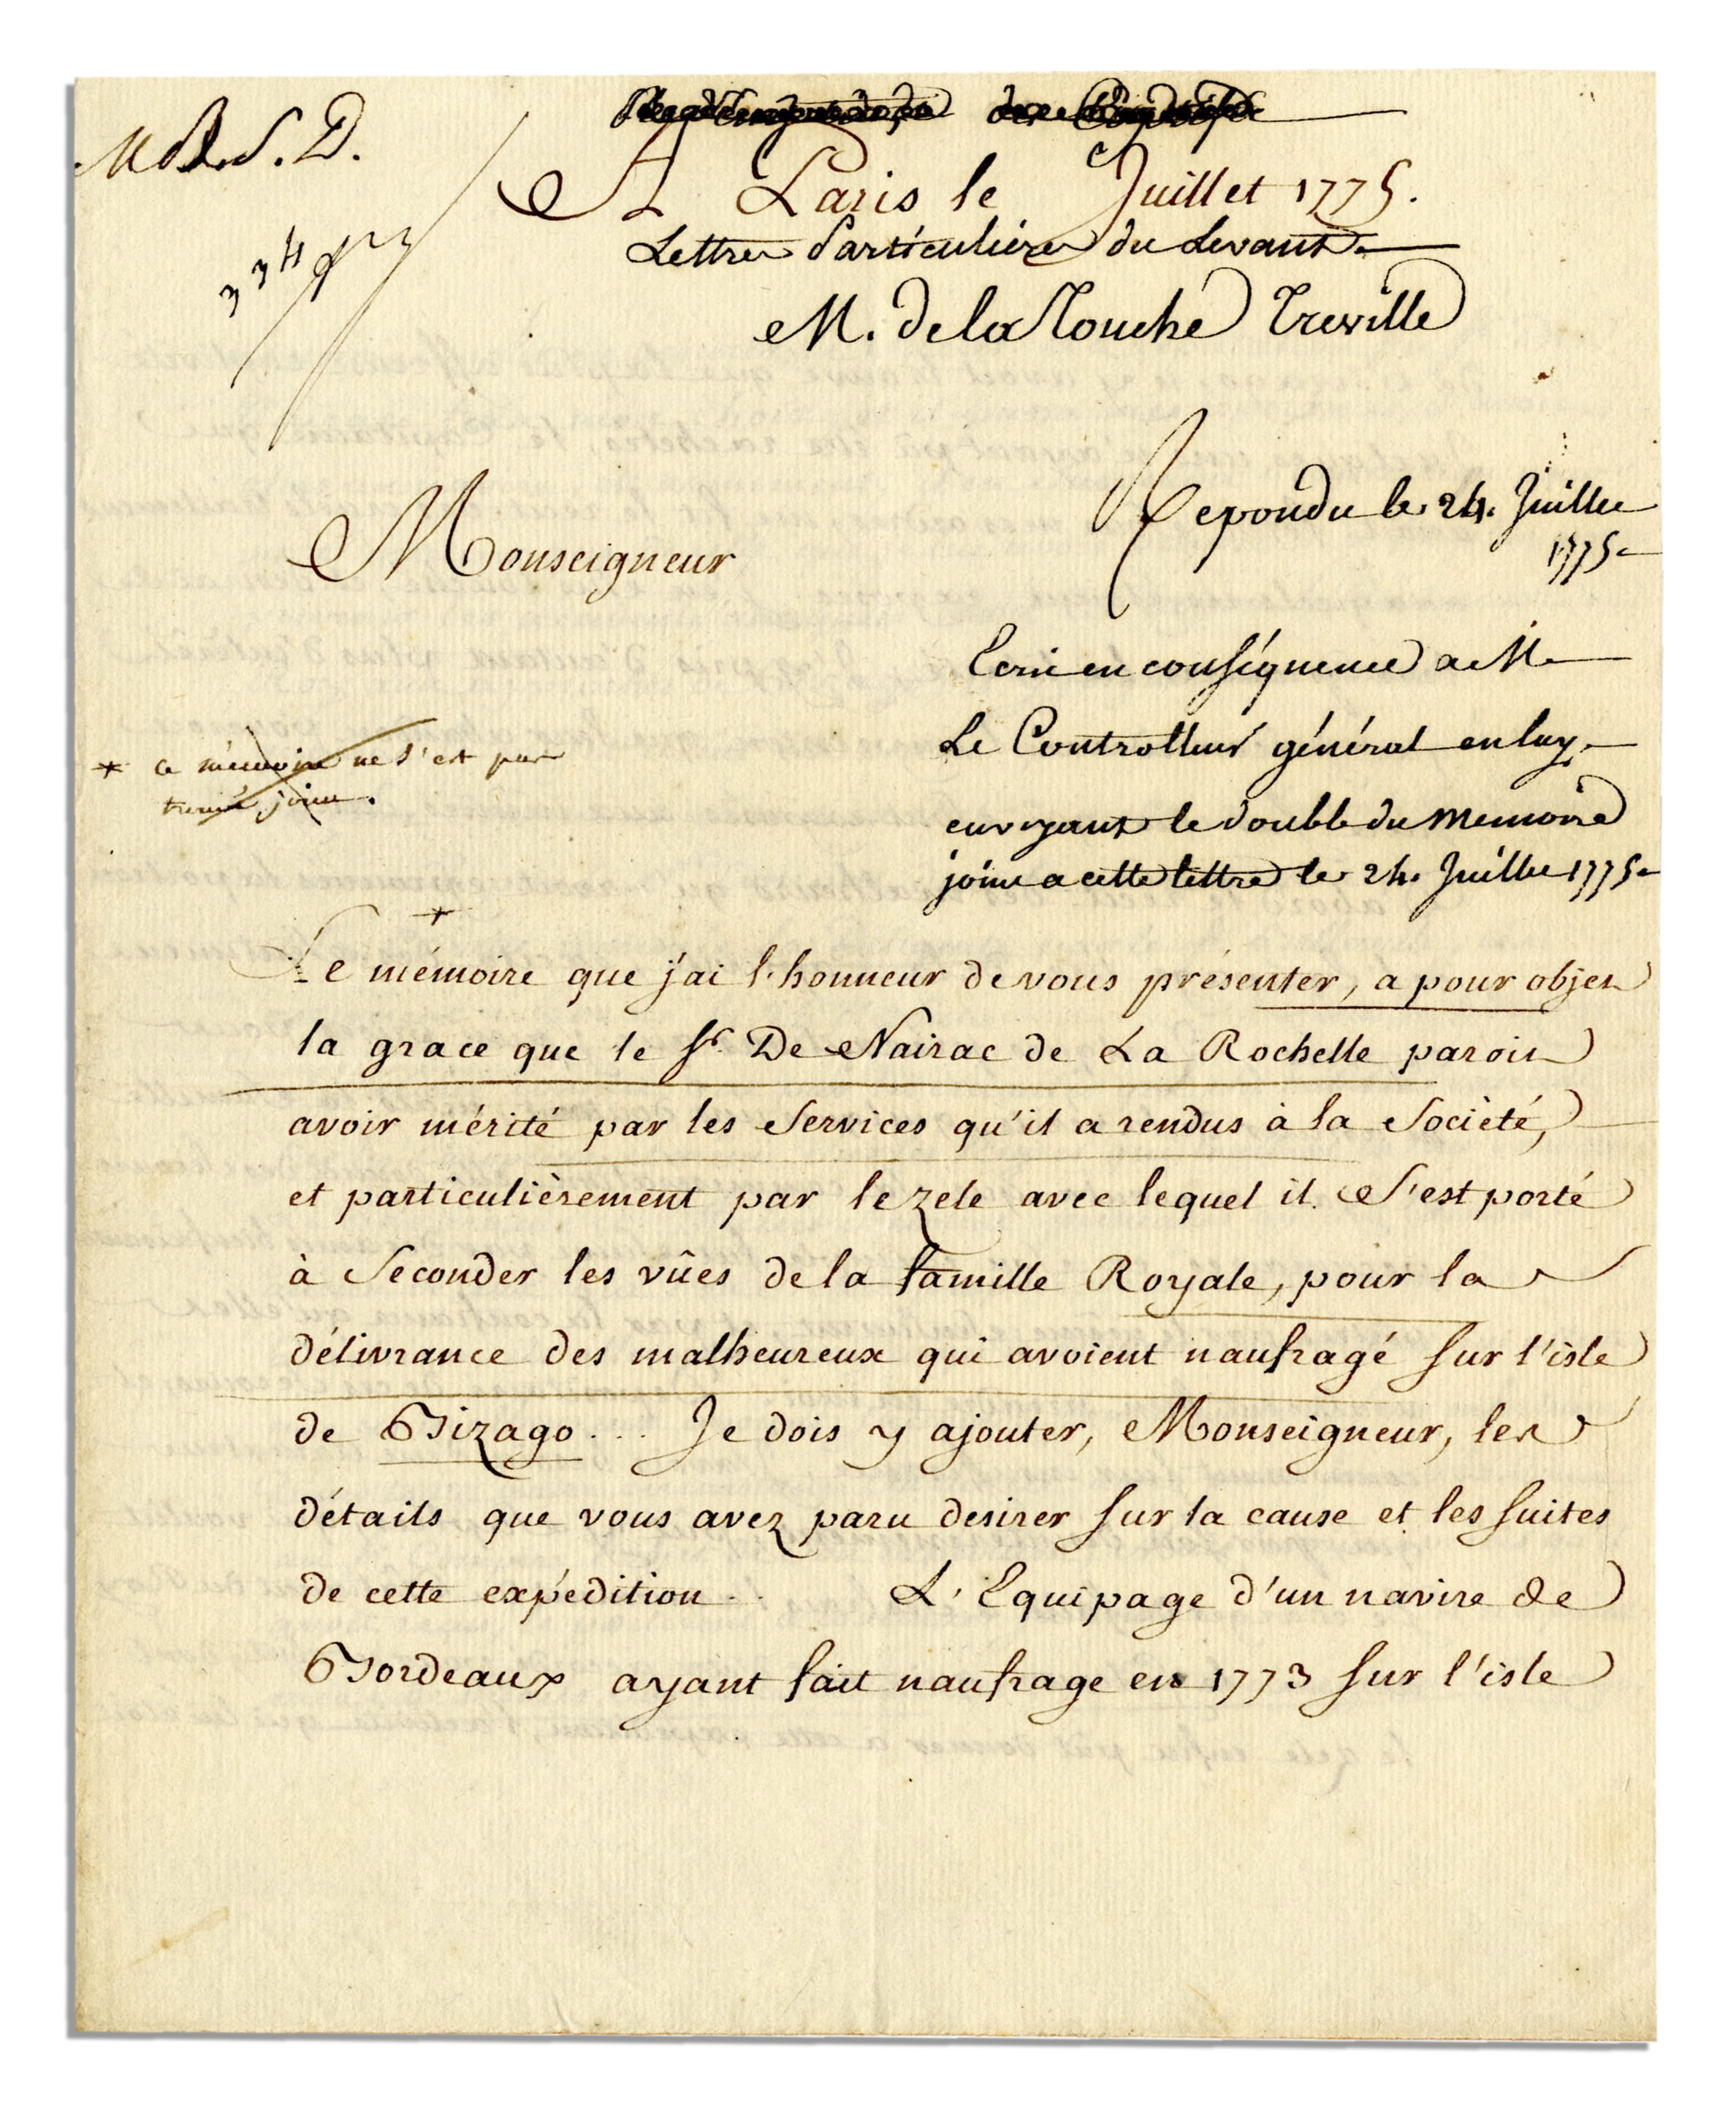 M. D. S. D.
A Paris le Juillet 1775.
Lettre Particuliere du Levant
M. de la Touche Treville
Monseigneur
Repondu le 24. Juillet
1775
Ecrit en conséquence a M
Le Controlleur général en luy
envoyant le double du memoire
joint a cette lettre le 24. Juillet 1775
* ce mémoire ne s'est pas
trouvé joint.
*
Le mémoire que j'ai l'honneur de vous présenter, a pour objet
la grace que le Sr. De Nairac de La Rochelle paroit
avoir mérité par les Services qu'il a rendus à la Société,
et particulièrement par le zele avec lequel il S'est porté
à Seconder les vûes de la famille Royale, pour la
délivrance des malheureux qui avoient naufragé sur l'isle
de Bizago... Je dois y ajouter, Monseigneur, les
détails que vous avez paru desirer sur la cause et les suites
de cette expédition.. L'Equipage d'un navire de
Bordeaux ayant fait naufrage en 1773 sur l'isle